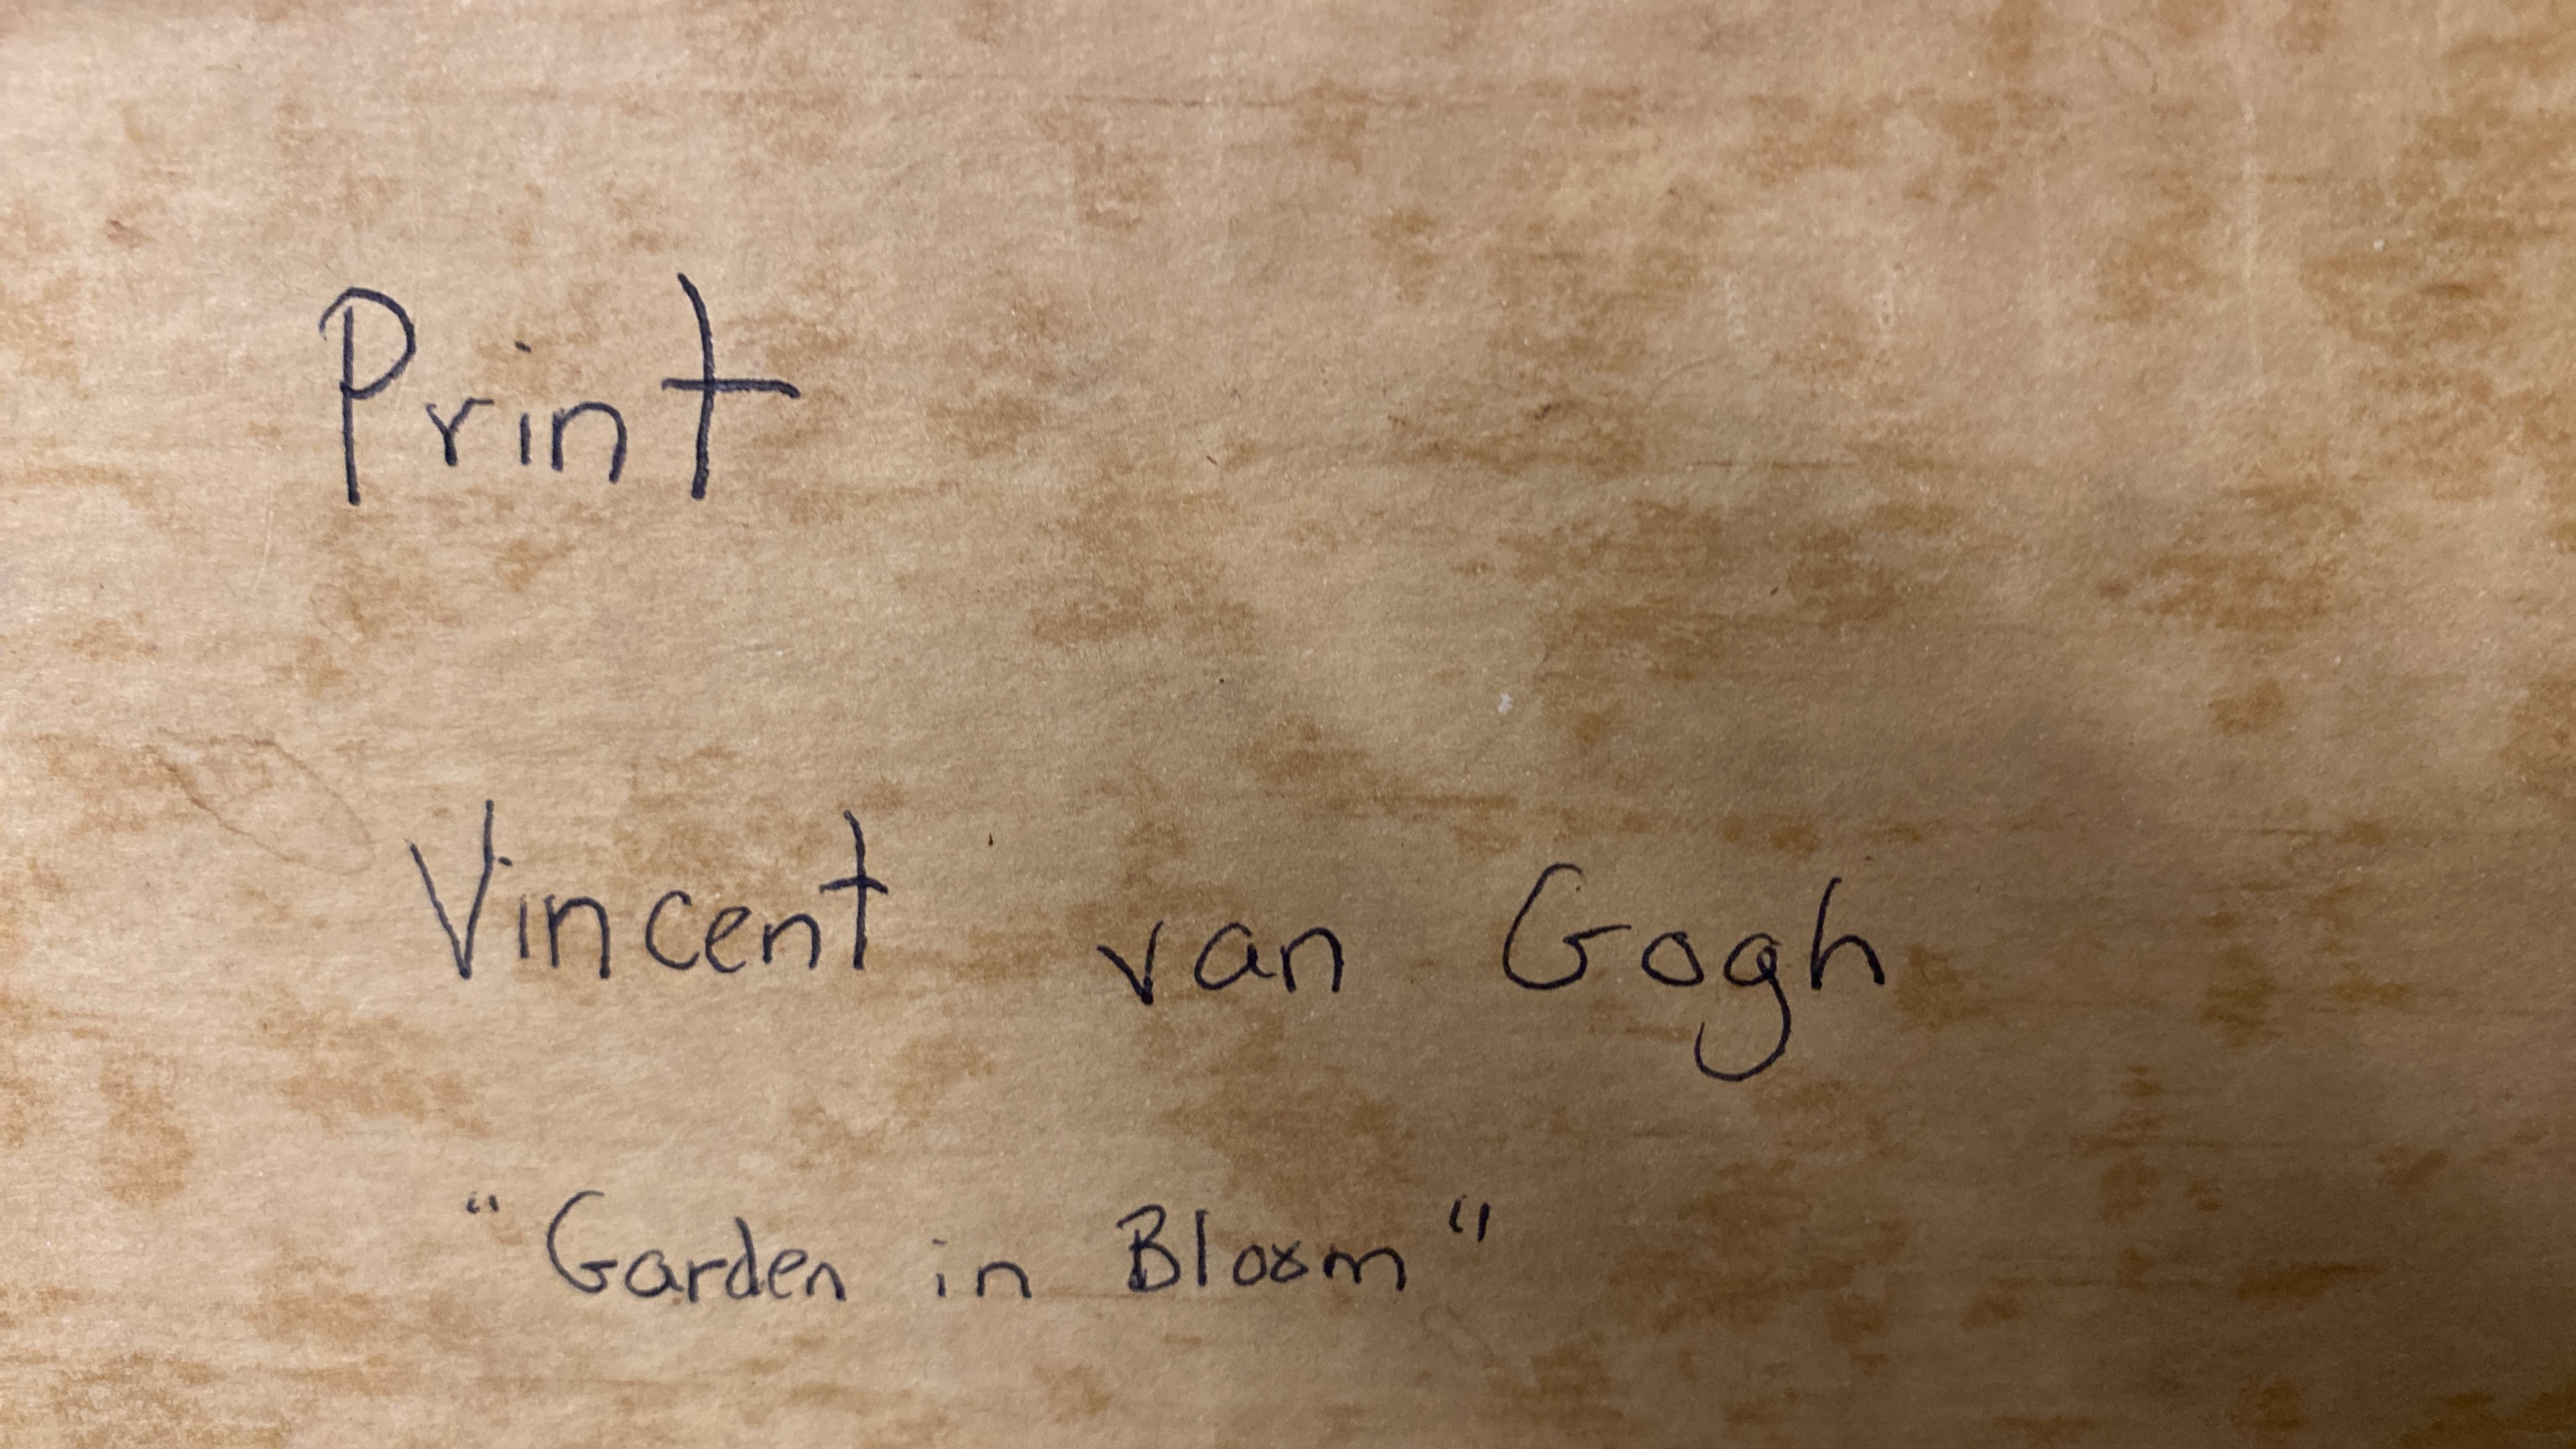 Print
Vincent van Gogh
"Garden in Bloom"